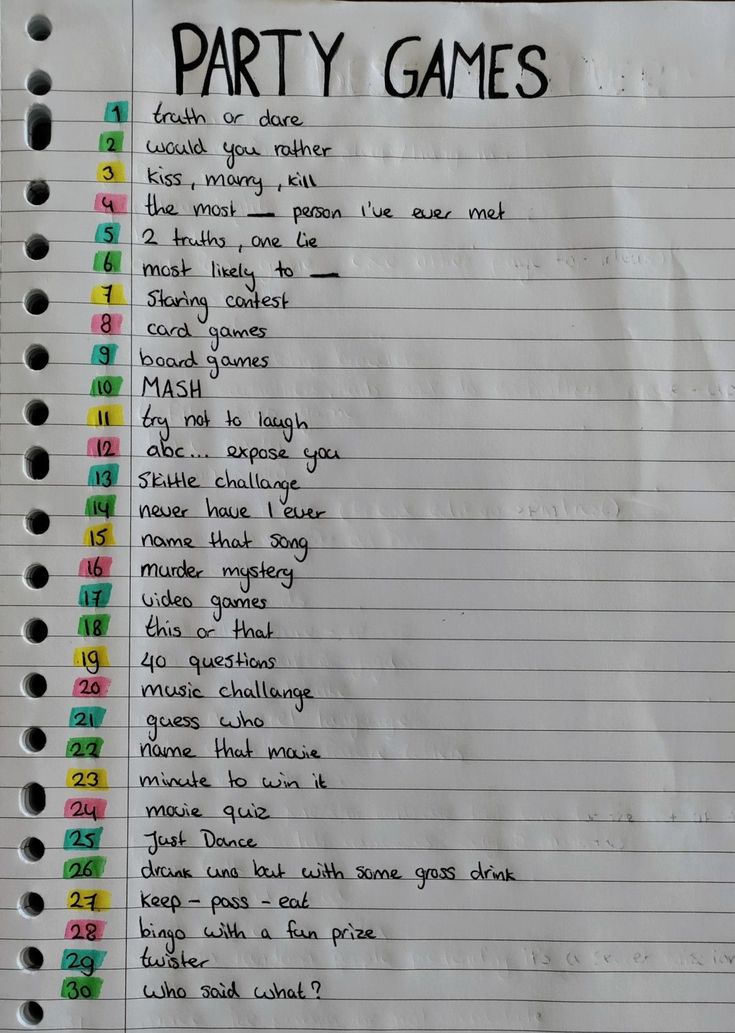 PARTY GAMES
1 truth or dare
2 would you rather
3 kiss, marry, kill
4 the most __ person i've ever met
5 2 truths, one lie
6 most likely to __
7 Staring contest
8 card games
9 board games
10 MASH
11 try not to laugh
12 abc... expose you
13 Skittle challange
14 never have I ever
15 name that song
16 murder mystery
17 video games
18 this or that
19 40 questions
20 music challange
21 guess who
22 name that movie
23 minute to win it
24 movie quiz
25 Just Dance
26 drunk uno but with some gross drink
27 keep - pass - eat
28 bingo with a fun prize
29 twister
30 who said what?